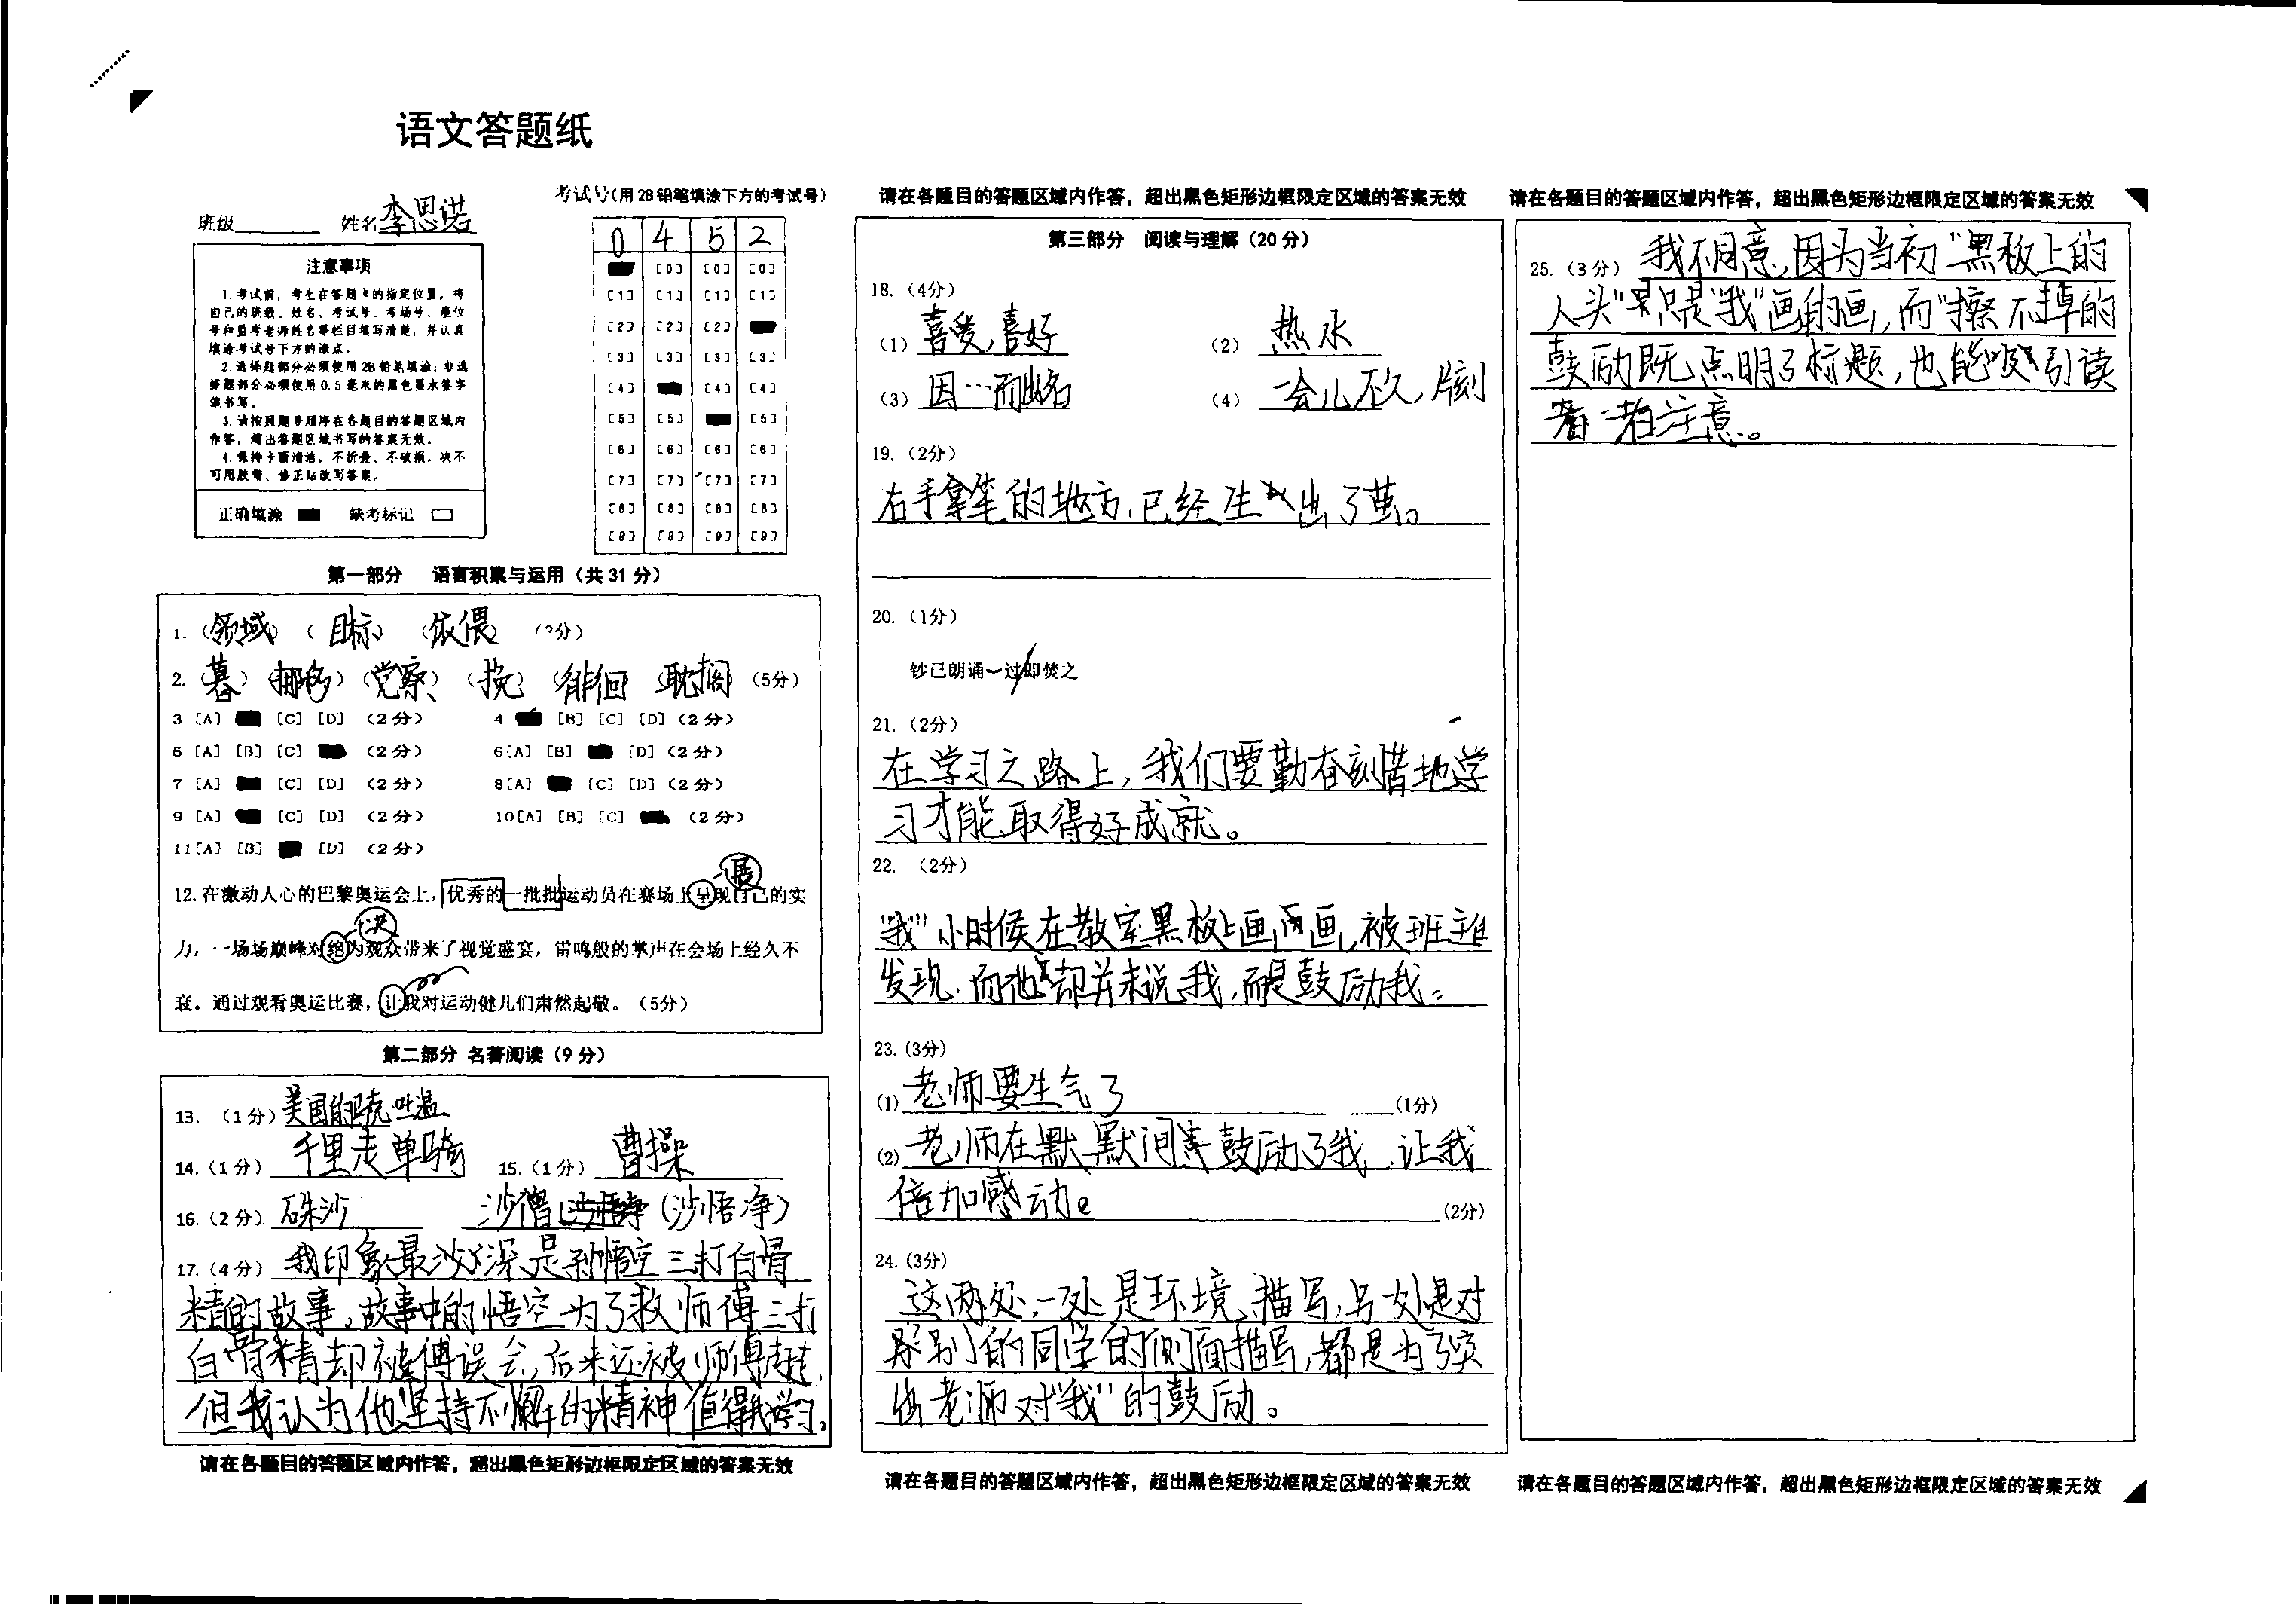 语文答题纸
班级 姓名 李思诺
考试号(用2B铅笔填涂下方的考试号)
0 4 5 2
[0] [0] [0]
[1] [1] [1] [1]
[2] [2] [2]
[3] [3] [3] [3]
[4] [4] [4]
[5] [5] [5]
[6] [6] [6] [6]
[7] [7] [7] [7]
[8] [8] [8] [8]
[9] [9] [9] [9]
注意事项
1.考试前,考生在答题卡的指定位置,将
自己的班级、姓名、考试号、考场号、座位
号和监考老师姓名等栏目填写清楚,并认真
填涂考试号下方的涂点。
2.选择题部分必须使用2B铅笔填涂;非选
择题部分必须使用0.5毫米的黑色墨水签字
笔书写。
3.请按照题号顺序在各题目的答题区域内
作答,超出答题区域书写的答案无效。
4.保持卡面清洁,不折叠、不破损,决不
可用胶带、修正贴改写答案。
正确填涂 缺考标记
第一部分 语言积累与运用(共31分)
1.(领域)(目标)(依偎)
2.(暮)(挪移)(觉察)(挽)(徘徊)(耽搁)(5分)
3 [A] [C] [D] (2分) 4 [B] [C] [D] (2分)
5 [A] [B] [C] (2分) 6[A] [B] [D] (2分)
7 [A] [C] [D] (2分) 8[A] [C] [D] (2分)
9 [A] [C] [D] (2分) 10[A] [B] [C] (2分)
11[A] [B] [D] (2分)
展
12.在激动人心的巴黎奥运会上,优秀的一批批运动员在赛场上呈现自己的实
决
力,一场场巅峰对绝为观众带来了视觉盛宴,雷鸣般的掌声在会场上经久不
衰。通过观看奥运比赛,让我对运动健儿们肃然起敬。(5分)
第二部分 名著阅读(9分)
13. (1分) 美国的马克吐温
14.(1分) 千里走单骑 15.(1分) 曹操
16.(2分) 硃沙 沙僧 (沙悟净)
17.(4分) 我印象最深是孙悟空三打白骨
精的故事,故事中的悟空为了救师傅三打
白骨精却被师傅误会,后来还被师傅赶走,
但我认为他坚持不懈的精神值得我学习。
请在各题目的答题区域内作答,超出黑色矩形边框限定区域的答案无效
请在各题目的答题区域内作答,超出黑色矩形边框限定区域的答案无效
第三部分 阅读与理解(20分)
18.(4分)
(1) 喜爱,喜好 (2) 热水
(3) 因…而出名 (4) 一会儿,不久,片刻
19.(2分)
右手拿笔的地方,已经生出了茧。
20.(1分)
钞已朗诵一过/即焚之
21.(2分)
在学习之路上,我们要勤奋刻惜地学
习才能取得好成就。
22. (2分)
"我"小时候在教室黑板上画画,被班主任
发现,而他却并未说我,而是鼓励我。
23.(3分)
(1) 老师要生气了 (1分)
(2) 老师在默默间鼓励了我,让我
倍加感动。 (2分)
24.(3分)
这两处,一处是环境描写,另一处是对
别的同学的侧面描写,都是为了突
出老师对"我"的鼓励。
请在各题目的答题区域内作答,超出黑色矩形边框限定区域的答案无效
请在各题目的答题区域内作答,超出黑色矩形边框限定区域的答案无效
25.(3分) 我不同意,因为当初"黑板上的
人头"只是"我"画的画,而"擦不掉的
鼓励既点明了标题,也能吸引读
者注意。
请在各题目的答题区域内作答,超出黑色矩形边框限定区域的答案无效